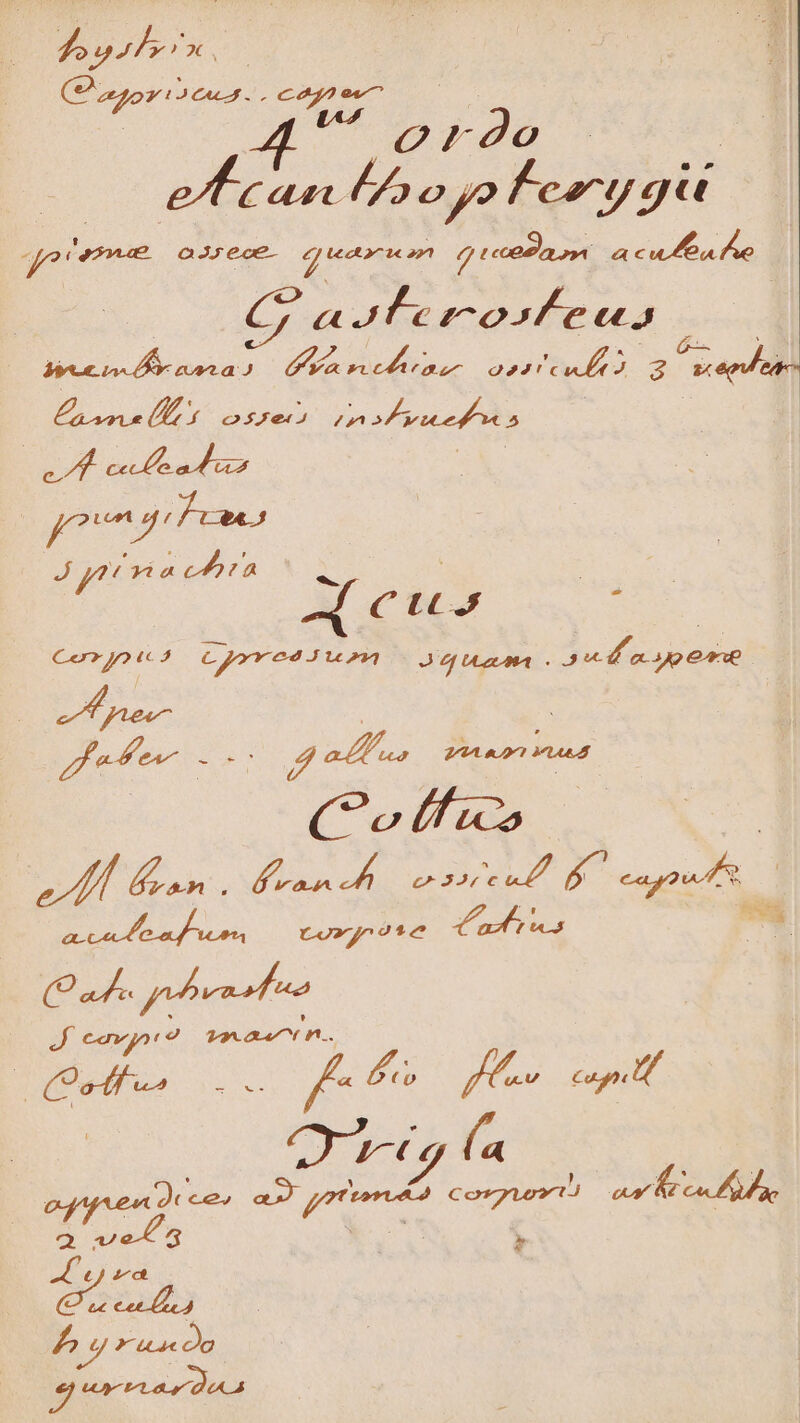 hystrix
Capriscus . . caper
4tus ordo
Acanthopterygii
pinnæ osseæ quarum quædam aculeatæ
Gasterosteus
membranas branchiar ossiculis 3 venter
lamellis osseis instructus
Aculeatus
pungitius
Spinachia
Zeus
corpus cpressum squam . subasperæ
Aper
faber - - . gallus marinus
Cottus
M bran . branch ossicul 6 caput
aculeatum corpore latius
Cataphrastus
Scorpio marin..
Cottus - . . flav capill
Trigla
appendices ad pinnas corporis articulatæ
2 vel 3
Lyra
Cuculus
hyrundo
gurnardus